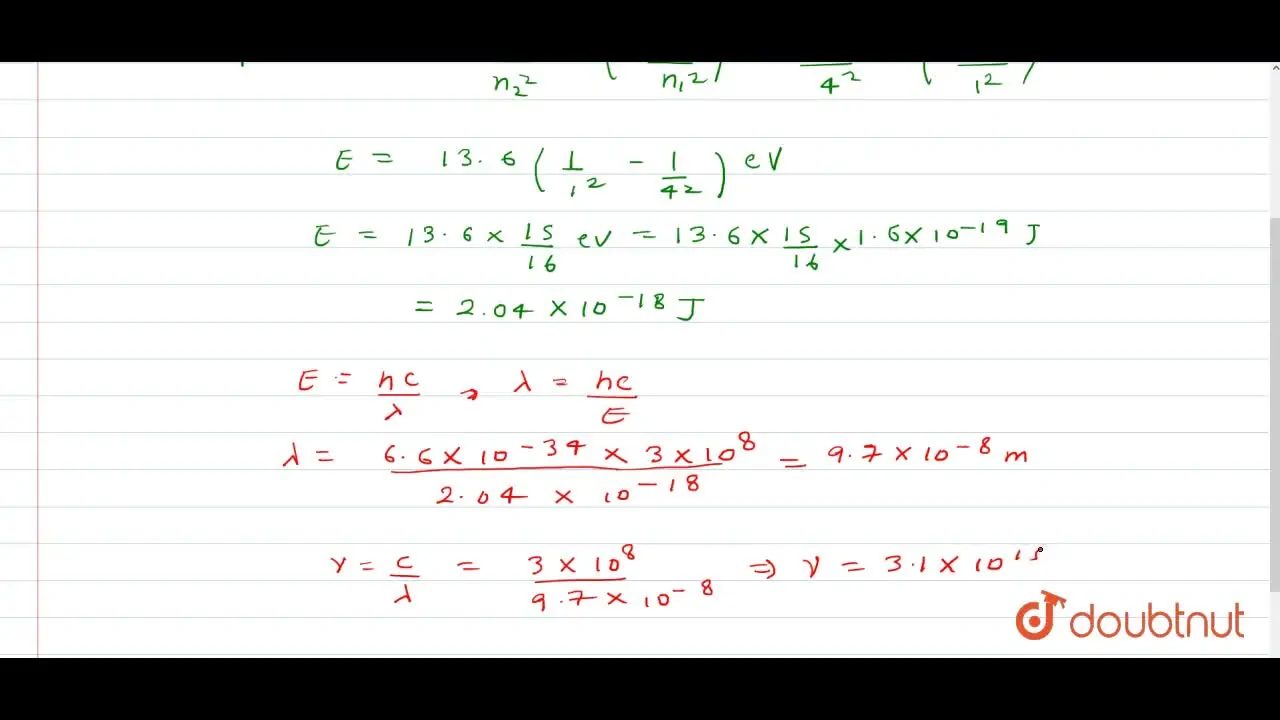 n₂² ( n₁² ) 4² ( 1² )
E = 13.6 ( 1/1² - 1/4² ) eV
E = 13.6 × 15/16 eV = 13.6 × 15/16 × 1.6 × 10⁻¹⁹ J
= 2.04 × 10⁻¹⁸ J
E = hc/λ , λ = hc/E
λ = 6.6 × 10⁻³⁴ × 3 × 10⁸ / 2.04 × 10⁻¹⁸ = 9.7 × 10⁻⁸ m
ν = c/λ = 3 × 10⁸ / 9.7 × 10⁻⁸ ⇒ ν = 3.1 × 10¹⁵
doubtnut